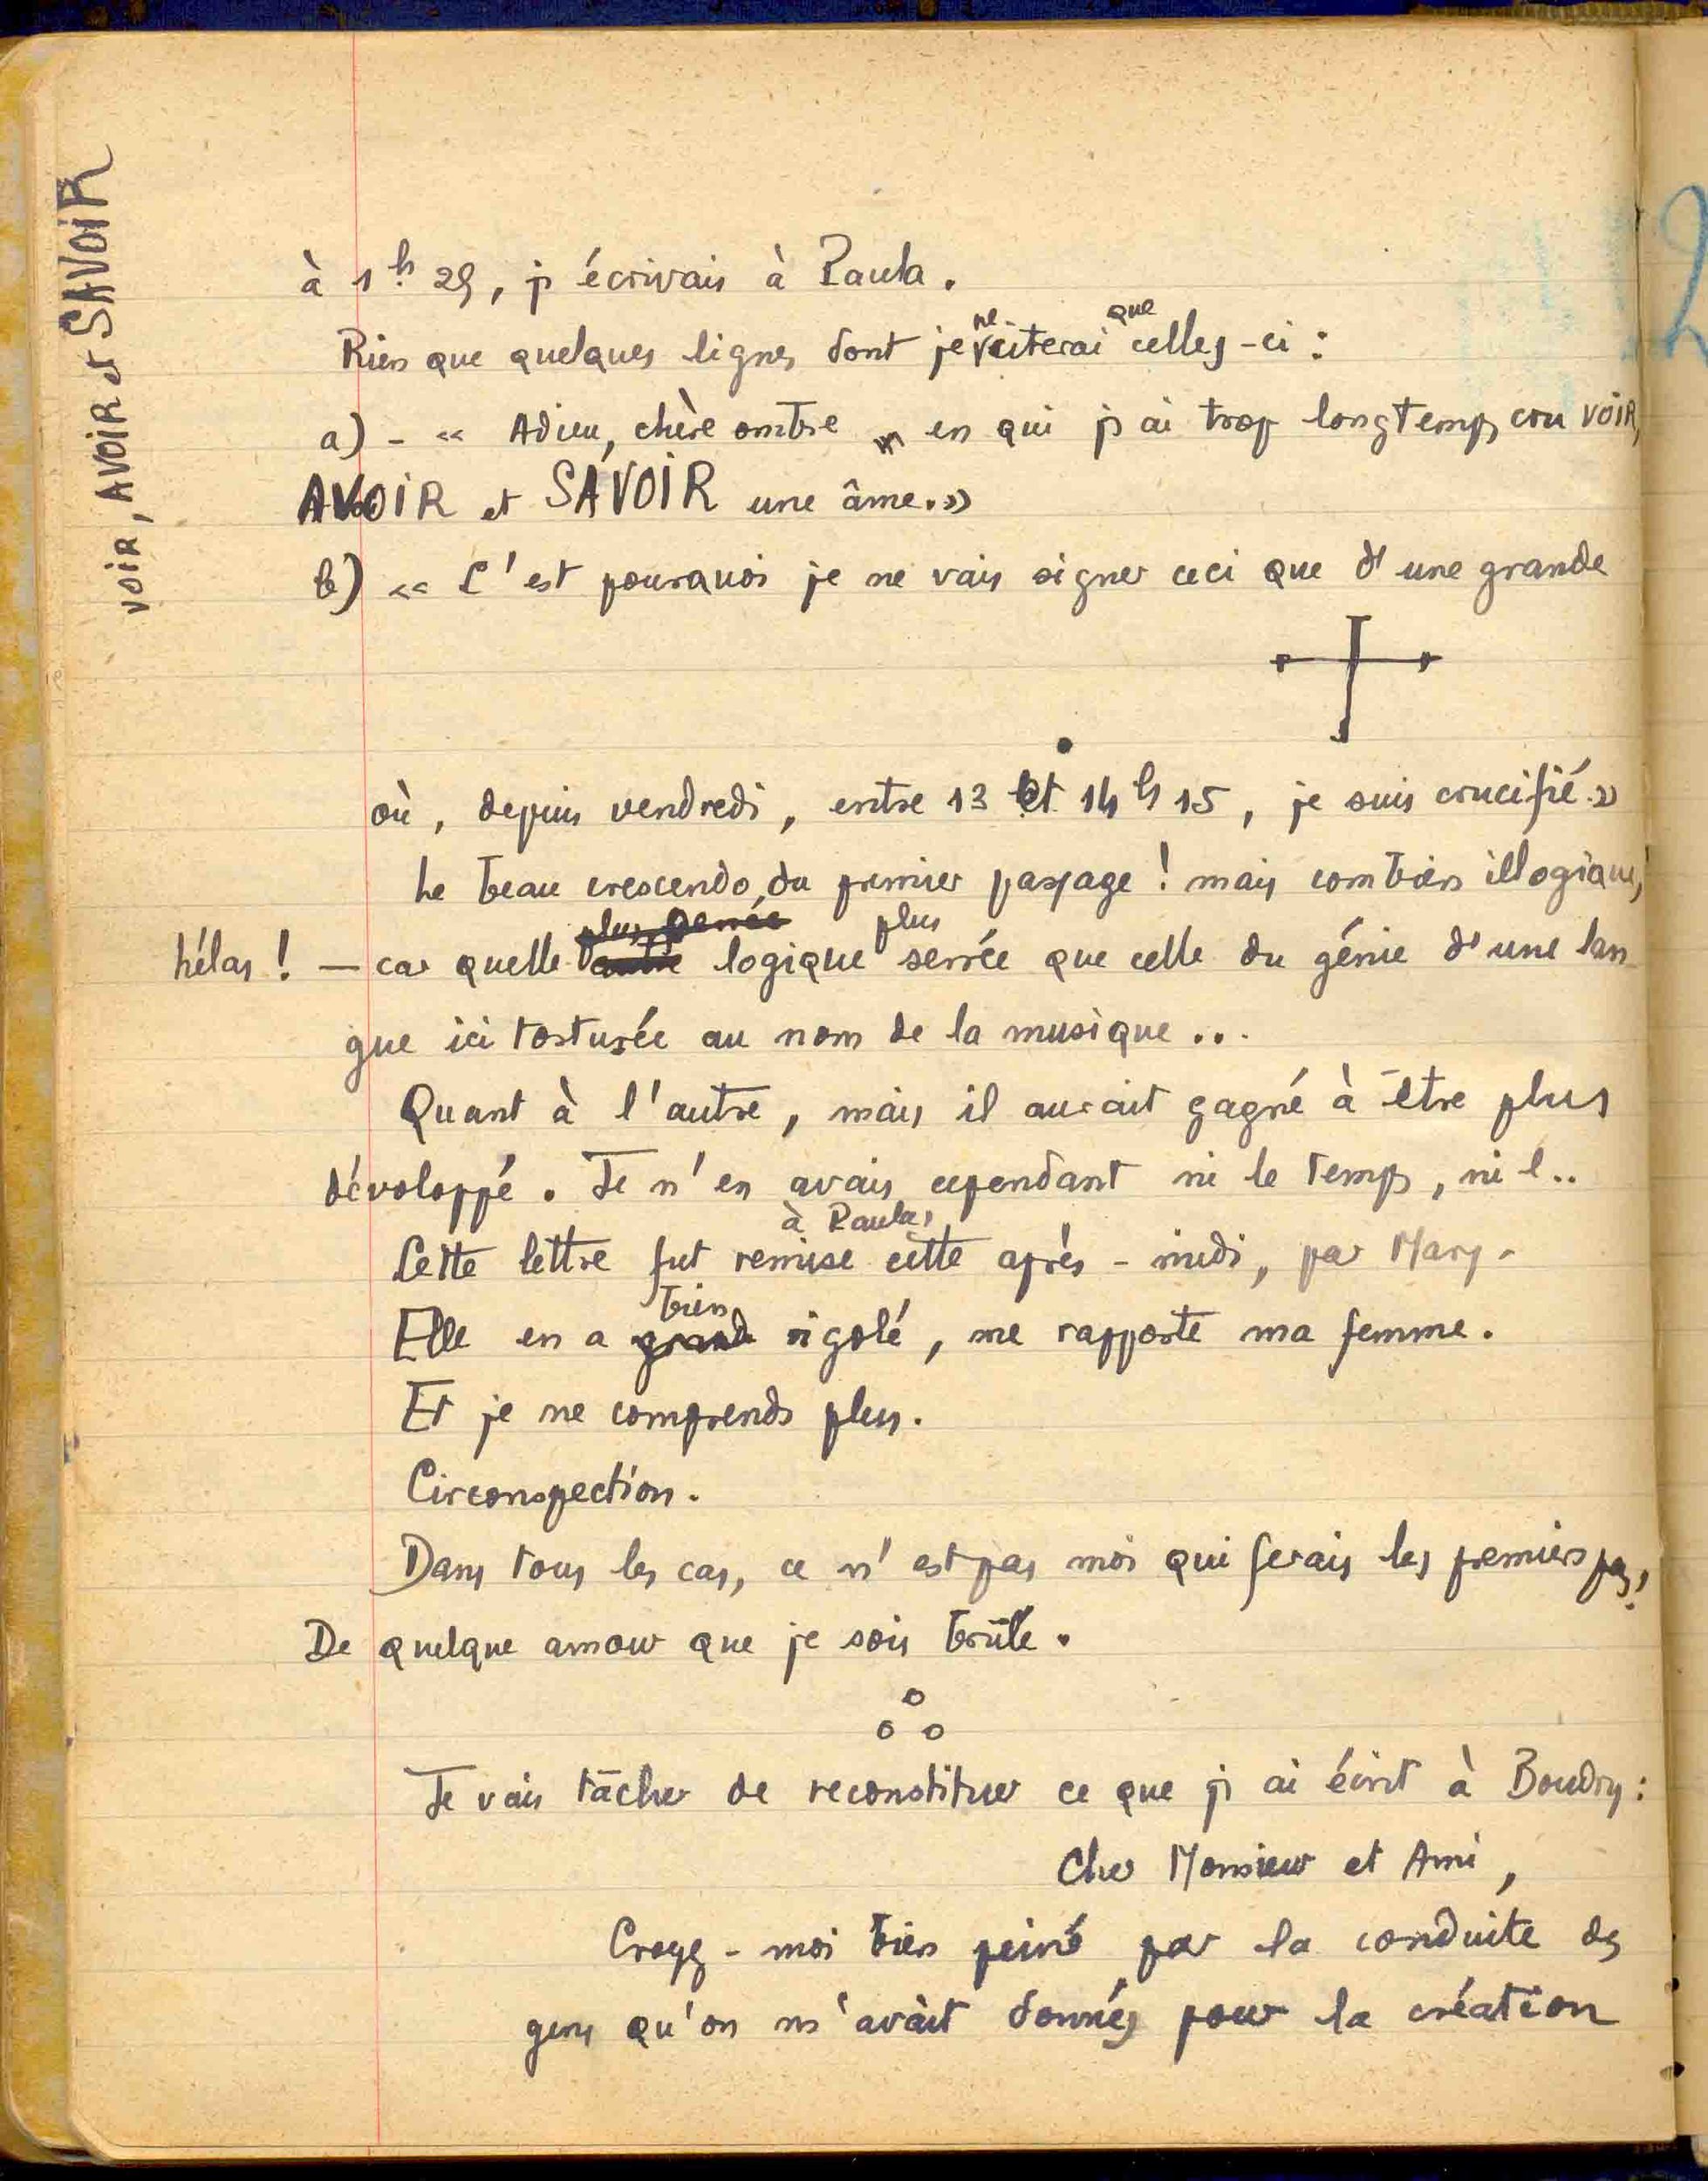 VOIR, AVOIR et SAVOIR
à 1h 29, j'écrivais à Paula.
Rien que quelques lignes dont je ne citerai que celles-ci :
a) - « Adieu, chère ombre en qui j'ai trop longtemps cru VOIR,
AVOIR et SAVOIR une âme. »
b) « C'est pourquoi je ne vais signer ceci que d'une grande
où, depuis vendredi, entre 13 et 14h15, je suis crucifié. »
Le beau crescendo du premier passage ! mais combien illogique,
hélas ! — car quelle logique plus serrée que celle du génie d'une lan
gue ici torturée au nom de la musique...
Quant à l'autre, mais il aurait gagné à être plus
dévoloppé. Je n'en avais cependant ni le temps, ni l..
Cette lettre fut remise à Paula, cette après-midi, par Mary.
Elle en a bien rigolé, me rapporte ma femme.
Et je ne comprends plus.
Circonspection.
Dans tous les cas, ce n'est pas moi qui ferais les premiers pas,
De quelque amour que je sois brûlé.
Je vais tâcher de reconstituer ce que j'ai écrit à Boudry :
Cher Monsieur et Ami,
Croyez-moi bien peiné par la conduite des
gens qu'on m'avait donnés pour la création